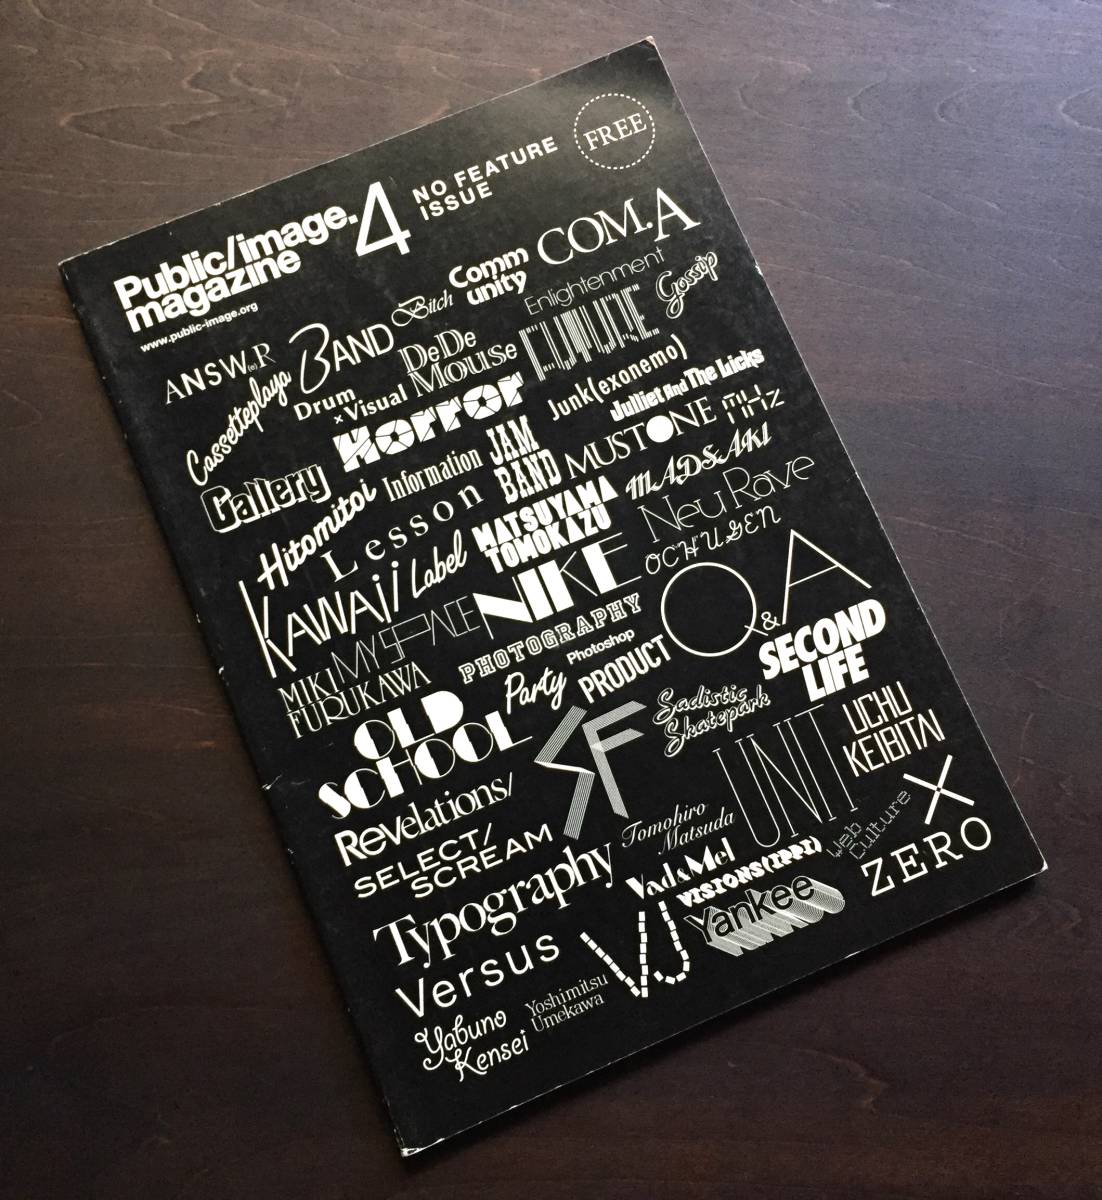 Public/image.
magazine
4
NO FEATURE
ISSUE
FREE
www.public-image.org
ANSW(e)R
BAND
Bitch
Comm
unity
COM.A
Cassetteplaya
Drum
×Visual
DeDe
Mouse
Enlightenment
Gossip
Gallery
Horror
Junk(exonemo)
Julliet And The Licks
Hitomitoi
Information
JAM
BAND
MUSTONE
MHz
Lesson
MATSUYAMA
TOMOKAZU
MAD&AKI
Neu Rave
KAWAii
Label
NIKE
OCHUSEN
MYSPACE
PHOTOGRAPHY
Q&A
MIKI
FURUKAWA
Party
Photoshop
PRODUCT
SECOND
LIFE
OLD
SCHOOL
SF
Sadistic
Skatepark
UNIT
UCHU
KEIBITAI
Revelations/
SELECT/
SCREAM
Tomohiro
Matsuda
Web
Culture
X
ZERO
Typography
Vad&Mel
VISIONS(IPPI)
Yankee
Versus
VJ
Yabuno
Kensei
Yoshimitsu
Umekawa